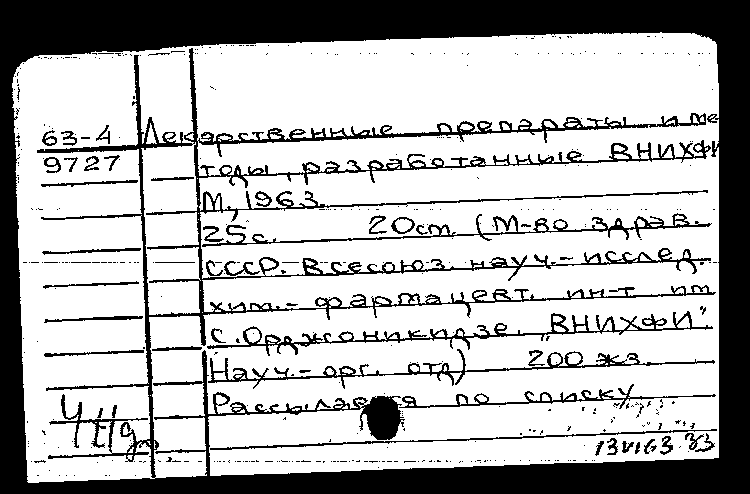 63-4 Лекарственные препараты и ме
9727 тоды, разработанные ВНИХФИ
М., 1963.
25с. 20см. (М-во здрав.
СССР. Всесоюз. науч.-исслед.
хим.-фармацевт. ин-т им
С. Орджоникидзе. „ВНИХФИ".
Науч.-орг. отд) 200 экз.
Рассылается по списку
13 VI 63 33